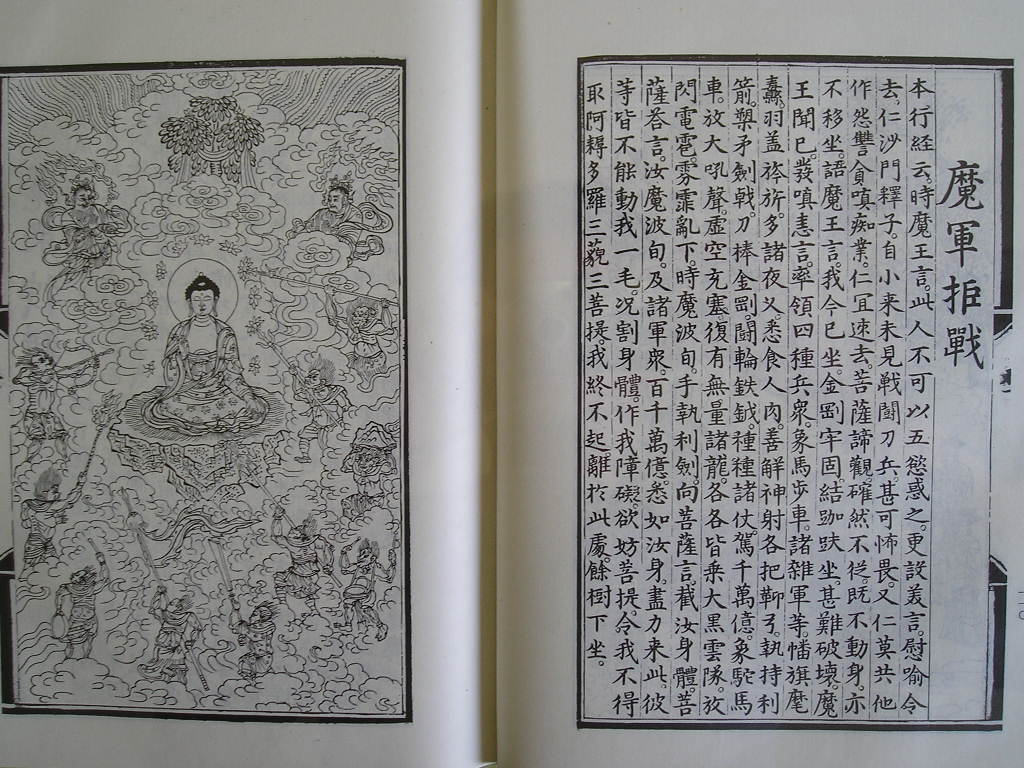 魔軍拒戰
本行経云。時魔王言。此人不可以五慾惑之。更設美言。慰喻令
去。仁沙門釋子。自小来未見戦鬪刀兵。甚可怖畏。又仁莫共他
作怨讐貪嗔痴業。仁冝速去。菩薩諦觀。確然不従。既不動身。亦
不移坐。語魔王言。我今已坐。金剛牢固。結跏趺坐。甚難破壞。魔
王聞已。發嗔恚言。率領四種兵衆。象馬歩車。諸雜軍等。幡旗麾
纛。羽盖旍旂。多諸夜叉。悉食人肉。善解神射。各把鞆弓。執持利
箭。槊矛劍戟。刀棒金剛。鬪輪鈇鉞。種種諸仗。駕千萬億。象駝馬
車。放大吼聲。虛空充塞。復有無量諸龍。各各皆乗大黒雲隊。放
閃電雹。雰霏亂下。時魔波旬。手執利劍。向菩薩言。截汝身體。菩
薩荅言。汝魔波旬。及諸軍衆。百千萬億。悉如汝身。盡力来此。彼
等皆不能動我一毛。况割身體。作我障礙。欲妨菩提。令我不得
取阿耨多羅三藐三菩提。我終不起離扵此處。餘樹下坐。